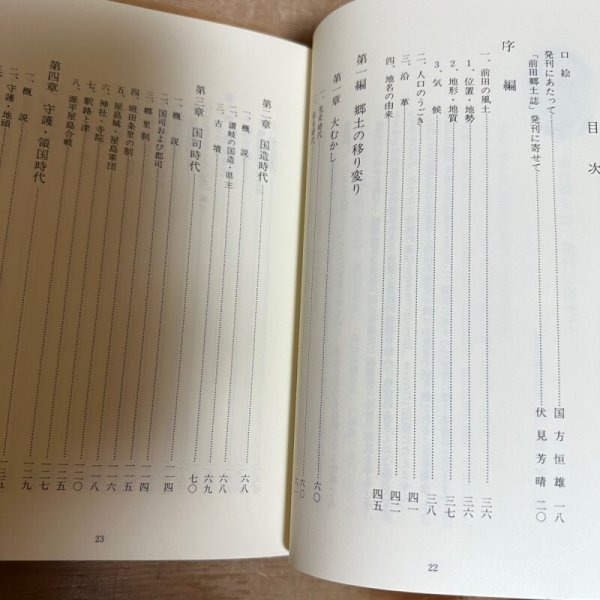 目次
口絵
発刊にあたって 国方恒雄 一八
「前田郷土誌」発刊に寄せて 伏見芳晴 二〇
序編
一、前田の風土 三六
1、位置・地勢 三六
2、地形・地質 三七
3、気候 三八
二、人口のうごき 四〇
三、沿革 四二
四、地名の由来 四五
第一編 郷土の移り変り
第一章 大むかし 六〇
22
第二章 国造時代
一、概説 六八
二、讃岐の国造・県主 六八
三、古墳 六九
第三章 国司時代 七〇
一、概説
二、国司および郡司
三、郷里制 一一四
四、班田条里の制 一一四
五、屋島城・屋島軍団
六、神社・寺院 一一六
七、駅路と津 一一八
八、源平屋島合戦 一二〇
第四章 守護・領国時代
一、概説 一二九
二、守護・地頭 一三五
23